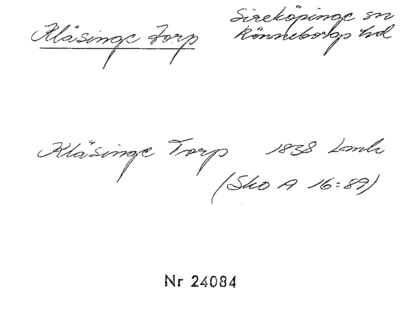 Kläsinge Torp
Sireköpinge sn
Rönnebergs hd
Kläsinge Torp 1838 Lmk
(Sko A 16:89)
Nr 24084